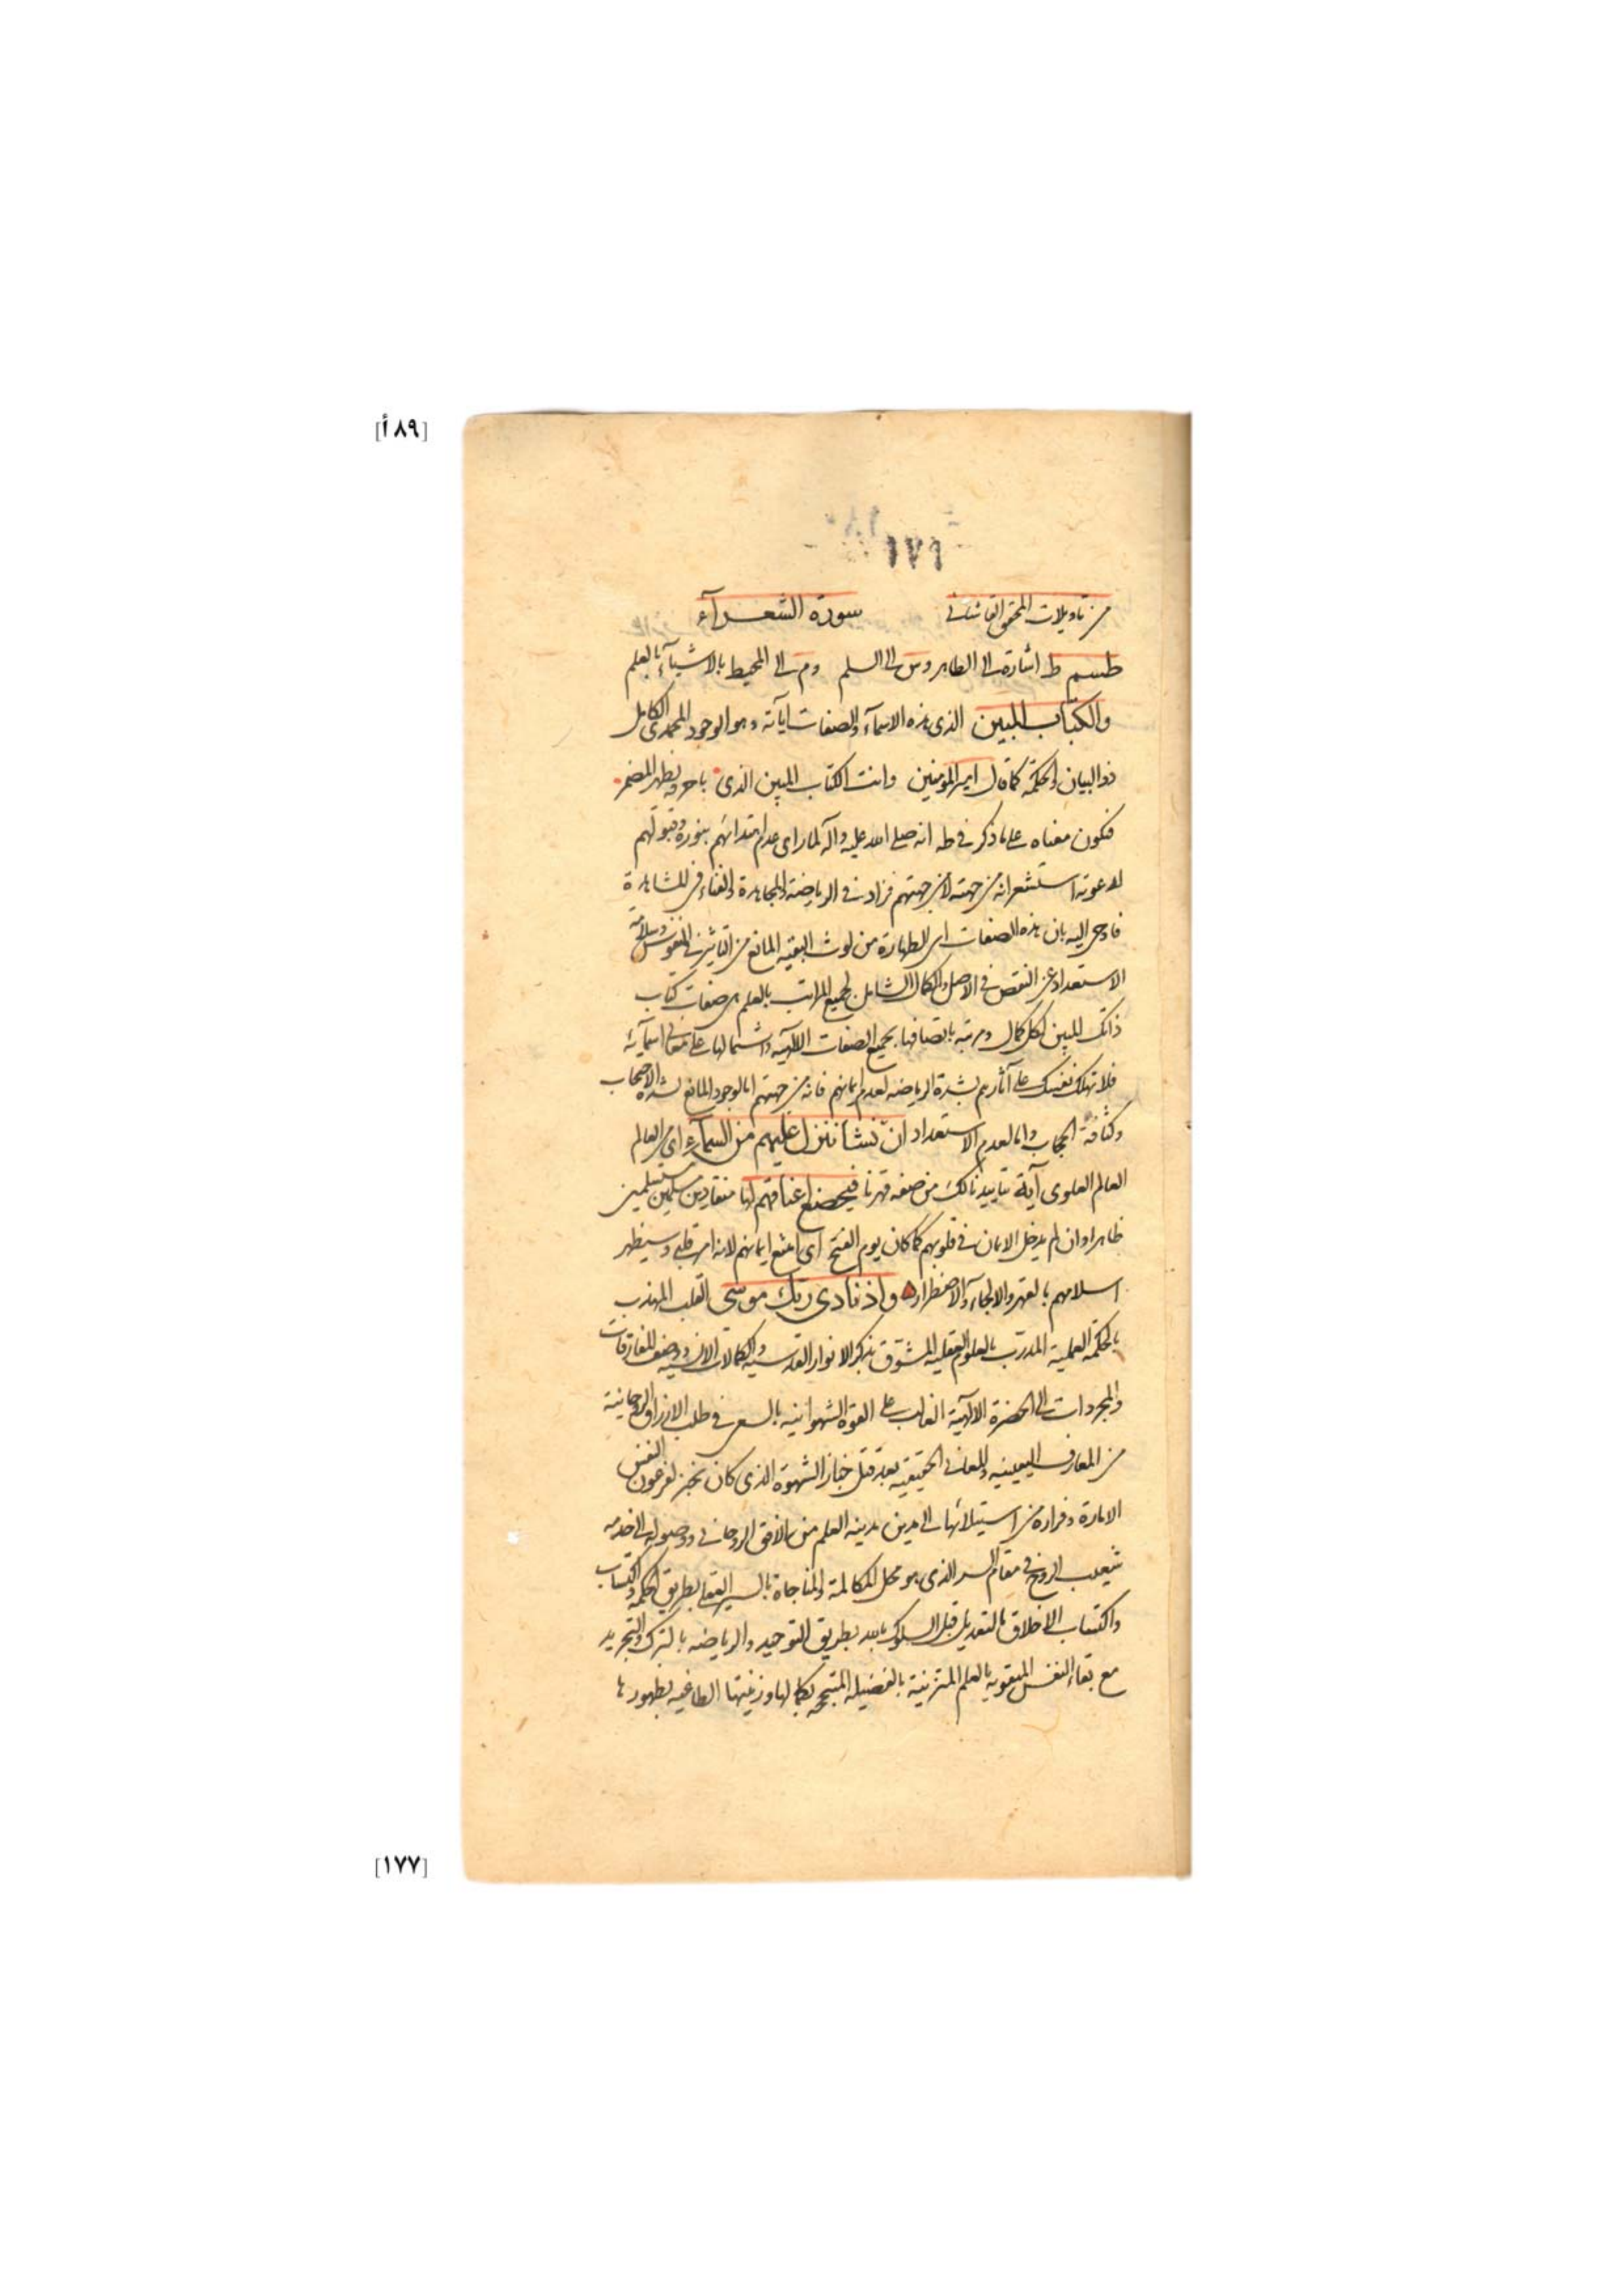 [٨٩ أ]
١٧٦
من تاويلات المحقق القاشانى سورة الشعرآء
طسم ط اشارة الى الطاهر وس الى السلم وم الى المحيط بالاشيآء بالعلم
والكتاب المبين الذى هذه الاسمآء والصفات اياته وهو الوجود المحمدى الكامل
ذو البيان والحكمة كما قال امير المومنين وانت الكتاب المبين الذى باحرفه يظهر المضمر
فيكون معناه على ما ذكر فى طه انه صلى الله عليه وآله لما راى عدم اهتدائهم بنوره وقبولهم
لدعوته استشعر انه من جهته لا من جهتهم فزاد فى الرياضة والمجاهدة والفناء فى المشاهدة
فاوحى اليه بان هذه الصفات اى الطهارة من لوث البقيه المانع من التاثير فى النفوس وسلامة
الاستعداد عن النقص فى الاصل والكمال الشامل لجميع المراتب بالعلم هى صفات كتاب
ذاتك المبين لكل كمال ومرتبة باتصافها بجميع الصفات الالهية واشتمالها على معانى اسمآئه
فلا تهلك نفسك على آثارهم بشدة الرياضه لعدم ايمانهم فانه من جهتهم اما لوجود المانع لشدة الاحتجاب
وكثافة الحجاب واما لعدم الاستعداد ان نشا ننزل عليهم من السمآء اى من العالم
العالم العلوى آية بتاييدنا لك من صفه قهرنا فيخضع اعناقهم لها منقادين مسلمين مستسلمين
ظاهرا وان لم يدخل الايمان فى قلوبهم كما كان يوم الفتح اى امتنع ايمانهم لانه امر قلبى وسيظهر
اسلامهم بالقهر والالجآء والاضطرار واذ نادى ربك موسى القلب المهذب
بالحكمة العملية المدرب بالعلوم العقليه المشوق بذكر الانوار القدسيه والكمالات الانسيه ووصف المفارقات
والمجردات الى الحضرة الالهية الغالب على القوة الشهوانيه بالسعى فى طلب الارزاق الروحانية
من المعارف اليقينيه والمعانى الحقيقيه بعد قتل خباز الشهوة الذى كان يخبز لفرعون النفس
الامارة وفراره من استيلائها الى مدين مدينه العلم من الافق الروحانى ووصوله الى خدمه
شعيب الروح فى مقام السر الذى هو محل المكالمة والمناجاة بالسير العقلى بطريق الحكمه واكتساب
واكتساب الاخلاق بالتعديل قبل السلوك بالله بطريق التوحيد والرياضه بالترك والتجريد
مع بقاء النفس المتقويه بالعلم المتزينة بالفضيله المتبجحه بكمالها وزينتها الطاغيه بظهورها
[١٧٧]